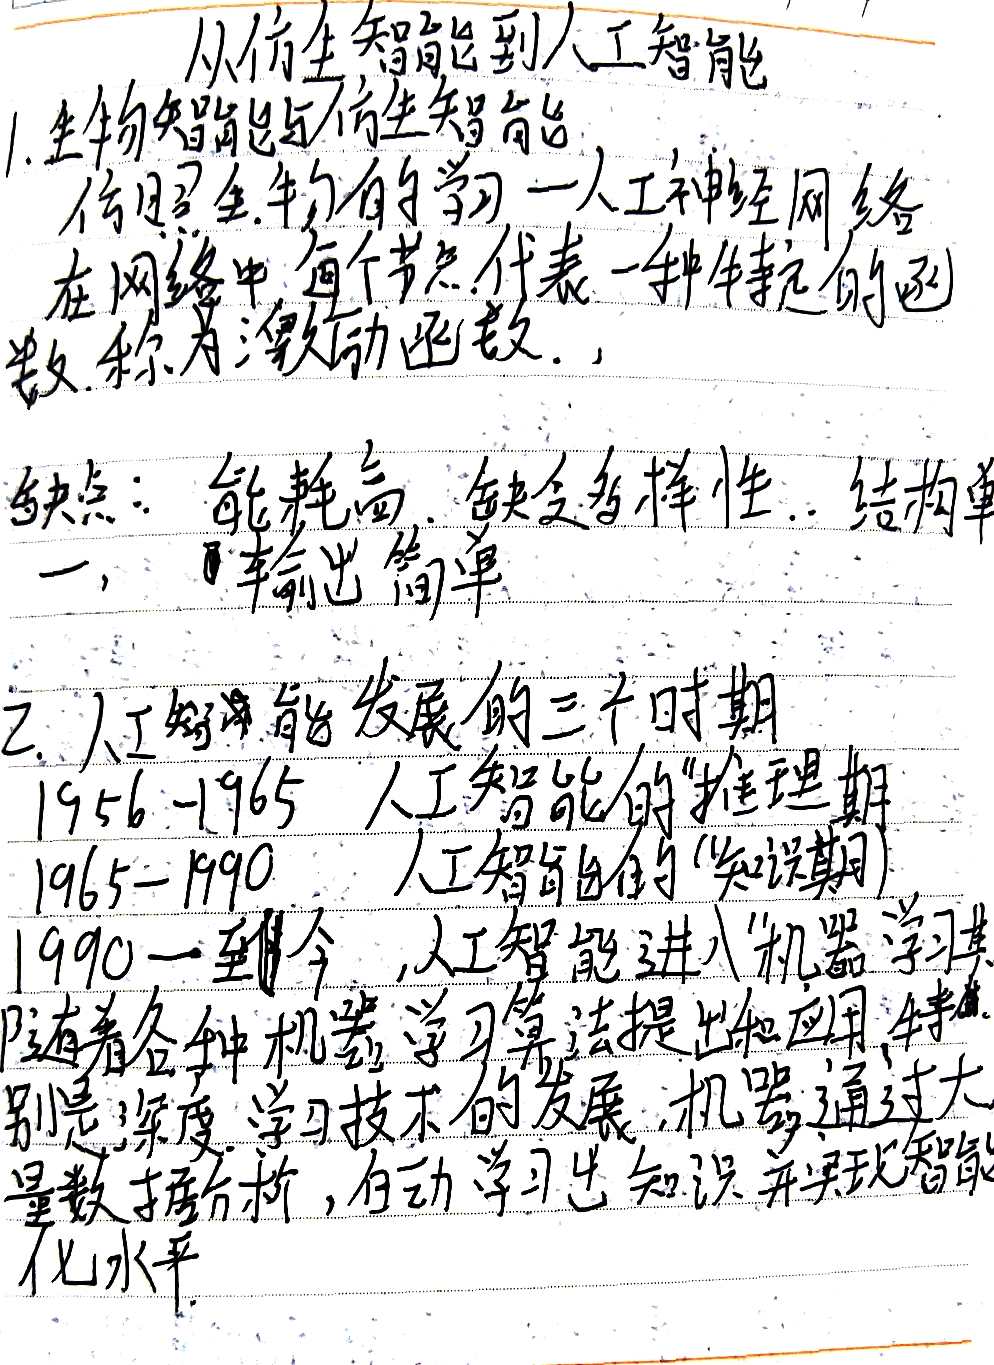 从仿生智能到人工智能
1.生物智能与仿生智能
仿照生物的学习一人工神经网络
在网络中,每个节点代表一种特定的函
数.称为激励函数.,
缺点: 能耗高.缺乏多样性..结构单
一, 输出简单
2.人工智能发展的三个时期
1956-1965 人工智能的"推理期
1965-1990 人工智能的("知识期)
1990一到今,人工智能进入"机器学习其
随着各种机器学习算法提出和应用,特
别是深度学习技术的发展,机器通过大
量数据分析,自动学习出知识并实现智能
化水平.